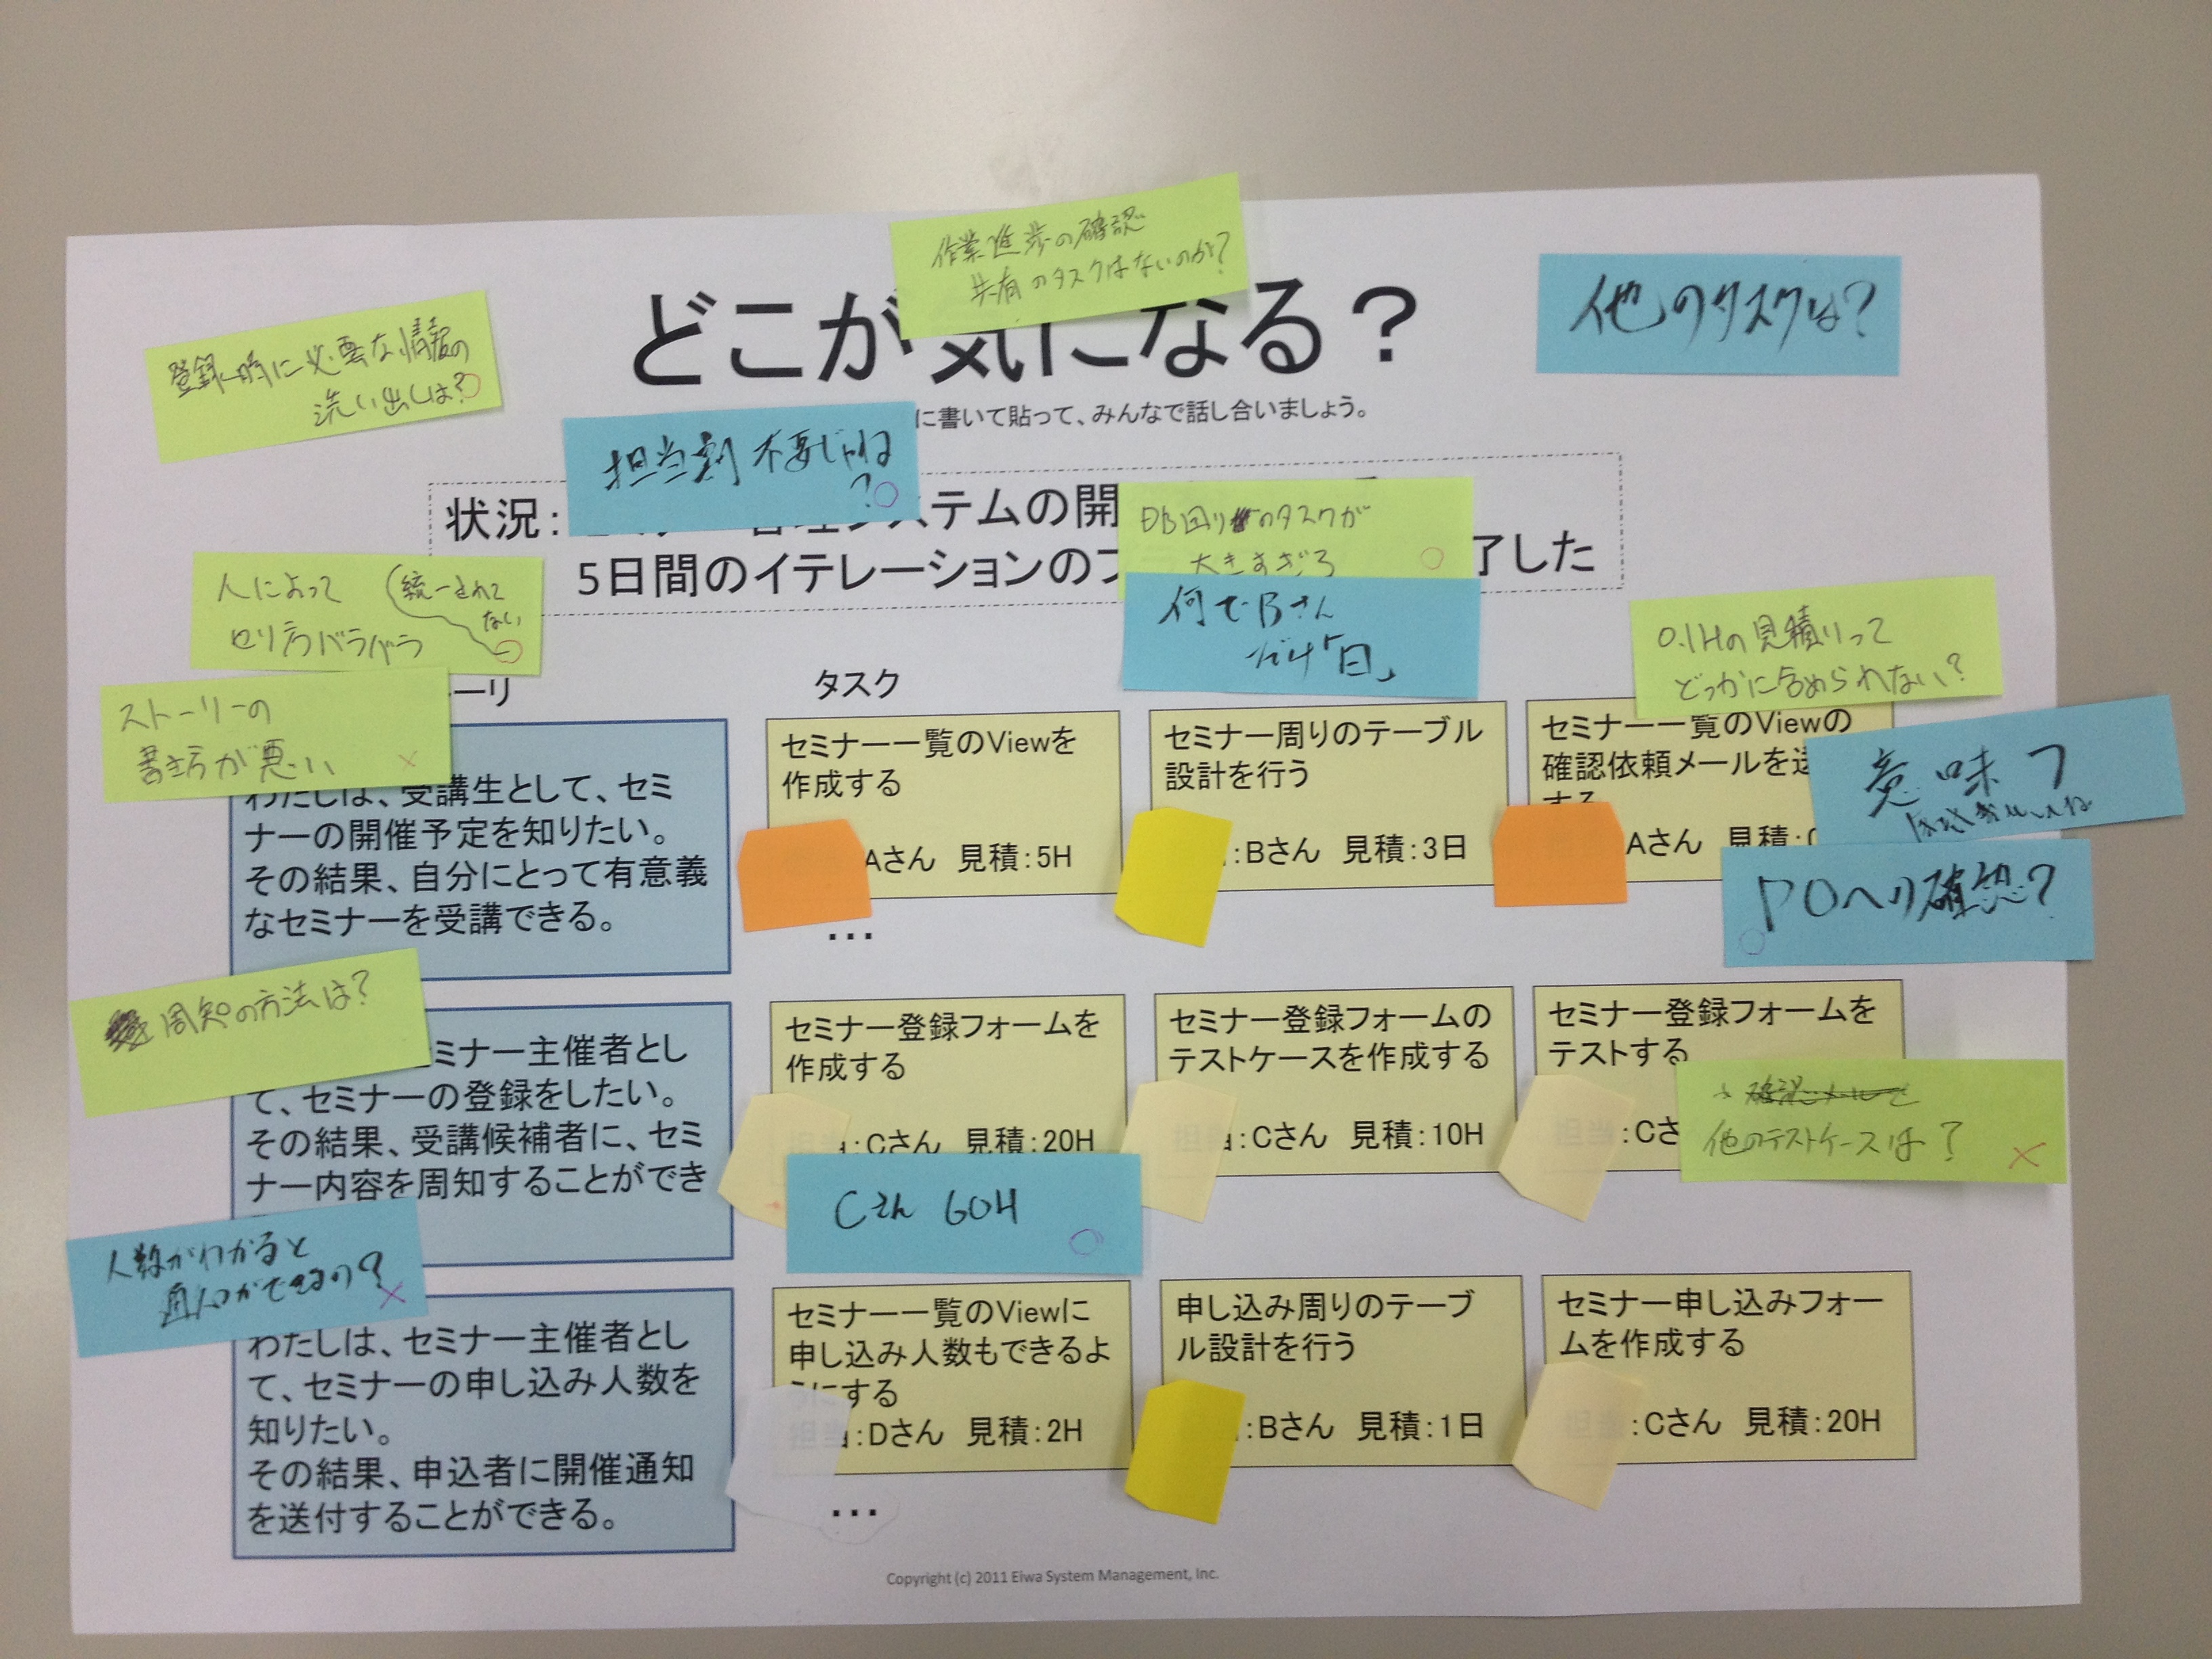 作業進歩の確認
共有のタスクはないのか?
他のタスクは?
どこが気になる?
登録時に必要な情報の
洗い出しは?
に書いて貼って、みんなで話し合いましょう。
担当割 不要じゃね
?
状況:
システムの開
5日間のイテレーションのプ
了した
DB回りのタスクが
大きすぎる
何でBさん
だけ「日」
人によって
(統一されて
ない
バラバラ
0.1Hの見積りって
どっかに含められない?
ストーリーの
書き方が悪い
ーリ
タスク
わたしは、受講生として、セミ
ナーの開催予定を知りたい。
その結果、自分にとって有意義
なセミナーを受講できる。
セミナー一覧のViewを
作成する
Aさん 見積:5H
...
セミナー周りのテーブル
設計を行う
:Bさん 見積:3日
セミナー一覧のViewの
確認依頼メールを送
する
Aさん 見積:0
意味フ
POへの確認?
周知の方法は?
ミナー主催者とし
て、セミナーの登録をしたい。
その結果、受講候補者に、セミ
ナー内容を周知することができ
セミナー登録フォームを
作成する
担当:Cさん 見積:20H
セミナー登録フォームの
テストケースを作成する
担当:Cさん 見積:10H
セミナー登録フォームを
テストする
担当:Cさ
他のテストケースは?
Cさん 60H
人数がわかると
通知ができるの?
わたしは、セミナー主催者とし
て、セミナーの申し込み人数を
知りたい。
その結果、申込者に開催通知
を送付することができる。
セミナー一覧のViewに
申し込み人数もできるよ
うにする
担当:Dさん 見積:2H
...
申し込み周りのテーブ
ル設計を行う
:Bさん 見積:1日
セミナー申し込みフォー
ムを作成する
担当:Cさん 見積:20H
Copyright (c) 2011 Eiwa System Management, Inc.